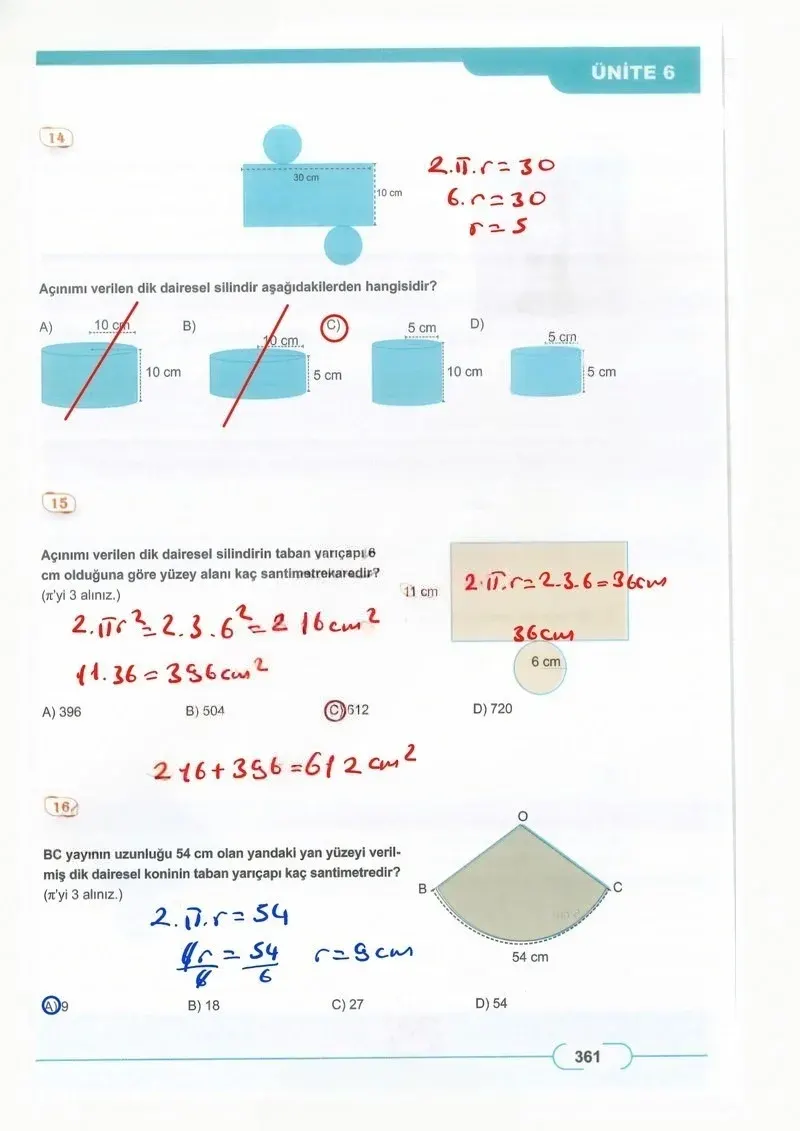 ÜNİTE 6
14
30 cm
10 cm
2.π.r = 30
6.r = 30
r = 5
Açınımı verilen dik dairesel silindir aşağıdakilerden hangisidir?
A) 10 cm 10 cm
B) 10 cm 5 cm
C) 5 cm 10 cm
D) 5 cm 5 cm
15
Açınımı verilen dik dairesel silindirin taban yarıçapı 6
cm olduğuna göre yüzey alanı kaç santimetrekaredir?
(π'yi 3 alınız.)
11 cm
2.π.r = 2.3.6 = 36cm
36cm
6 cm
2.πr² = 2.3.6² = 216cm²
11.36 = 396cm²
A) 396
B) 504
C) 612
D) 720
216 + 396 = 612 cm²
16
BC yayının uzunluğu 54 cm olan yandaki yan yüzeyi veril-
miş dik dairesel koninin taban yarıçapı kaç santimetredir?
(π'yi 3 alınız.)
O
B
C
54 cm
2.π.r = 54
6r/6 = 54/6 r = 9cm
A) 9
B) 18
C) 27
D) 54
361